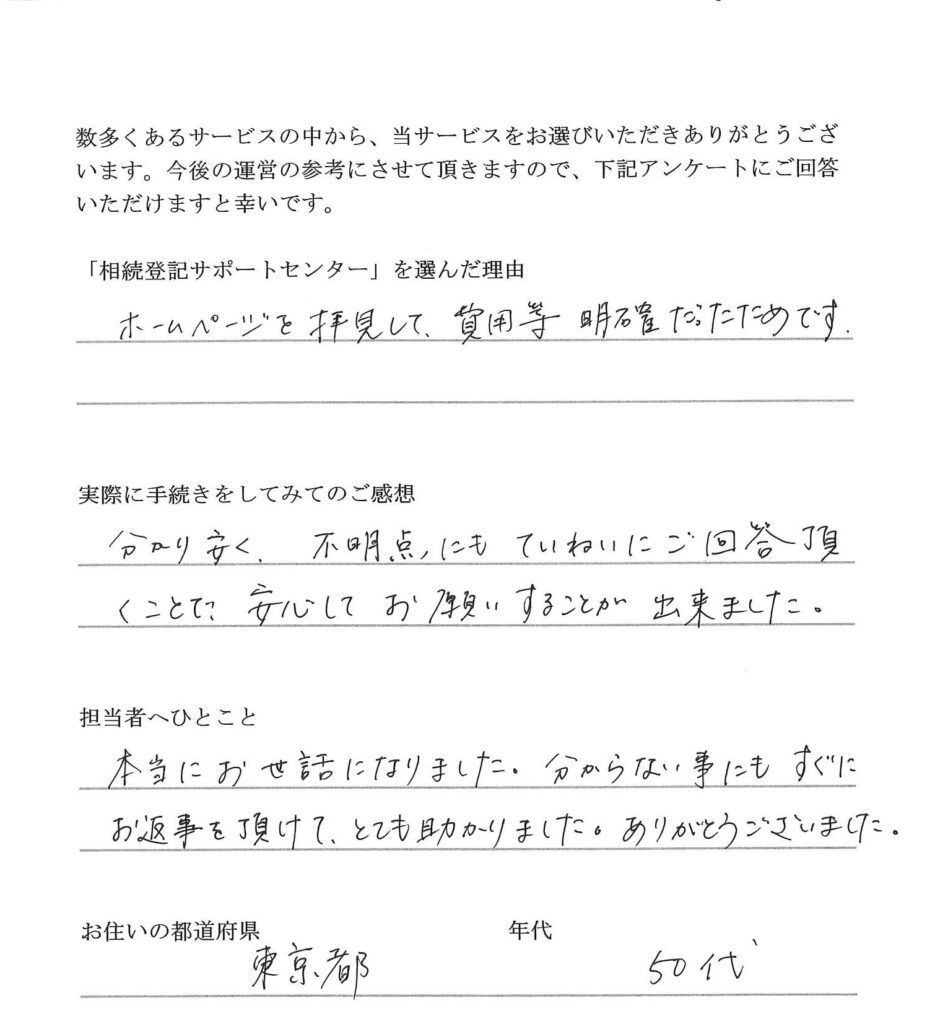 数多くあるサービスの中から、当サービスをお選びいただきありがとうござ
います。今後の運営の参考にさせて頂きますので、下記アンケートにご回答
いただけますと幸いです。
「相続登記サポートセンター」を選んだ理由
ホームページを拝見して、費用等 明確だったためです.
実際に手続きをしてみてのご感想
分かり安く、不明点にもていねいにご回答頂
くことで、安心してお願いすることが出来ました。
担当者へひとこと
本当にお世話になりました。分からない事にもすぐに
お返事を頂けて、とても助かりました。ありがとうございました。
お住いの都道府県 年代
東京都 50代